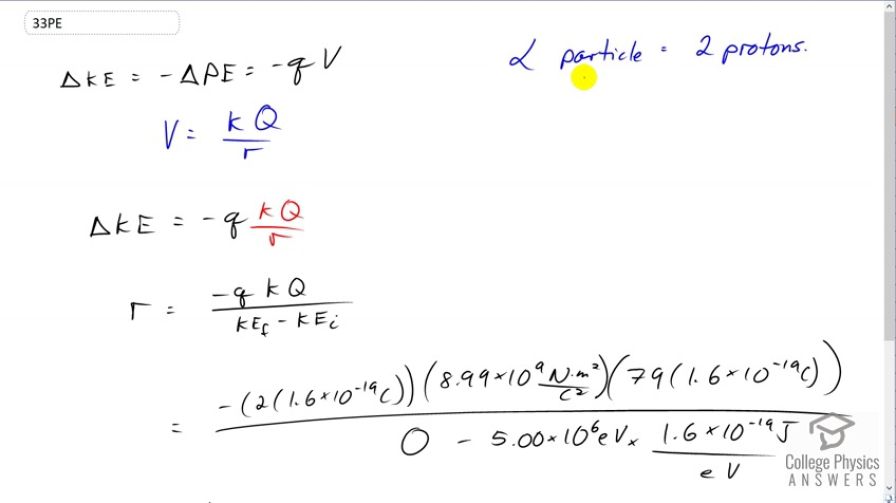 33PE
ΔKE = -ΔPE = -qV
α particle = 2 protons.
V = kQ/r
ΔKE = -q kQ/r
r = -q k Q / KE_f - KE_i
= -(2(1.6×10^-19 C))(8.99×10^9 N·m²/C²)(79(1.6×10^-19 C)) / 0 - 5.00×10^6 eV × 1.6×10^-19 J / eV
College Physics
ANSWERS